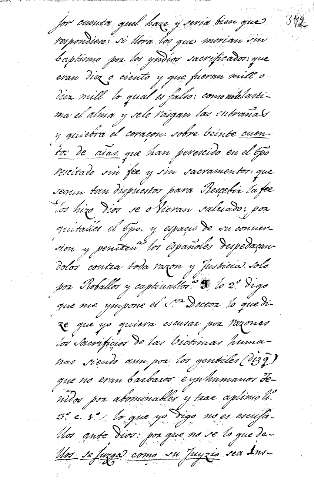 342
por cuenta quel haze y seria bien que
respondiese: si llora los que morian sin
baptismo por los yndios sacrificados: que
eran diez o ciento y que fueran mill o
diez mill lo qual es falso: como no lasti-
ma el alma y se le rasgan las entrañas
y quiebra el corazon sobre veinte cuen-
tos de añas que han perecido en el tpo
recitado sin fee y sin sacramentos: que
seran tan dispuestos para Recebir la fee
los hizo dios se o vieran salvado: por
quitarles el tpo. y espacio de su conver-
sion y penitencia los españoles despedaçan-
dolos contra toda razon y Justicia solo
por Roballos y captivallos. A lo 2º digo
que me ympone el Sr. Doctor lo que di-
ze que yo quiera escusar por razones
los sacrificios de las Victimas huma-
nas siendo aun por los gentiles
que no eran barbaros e ynhumanos te-
nidos por abominables y trae a plinio li.
3º c. 1º. lo que yo digo no es escusa-
llos ante dios: por que no se lo que de-
llos se juzga como su Juyzio sea Ins-